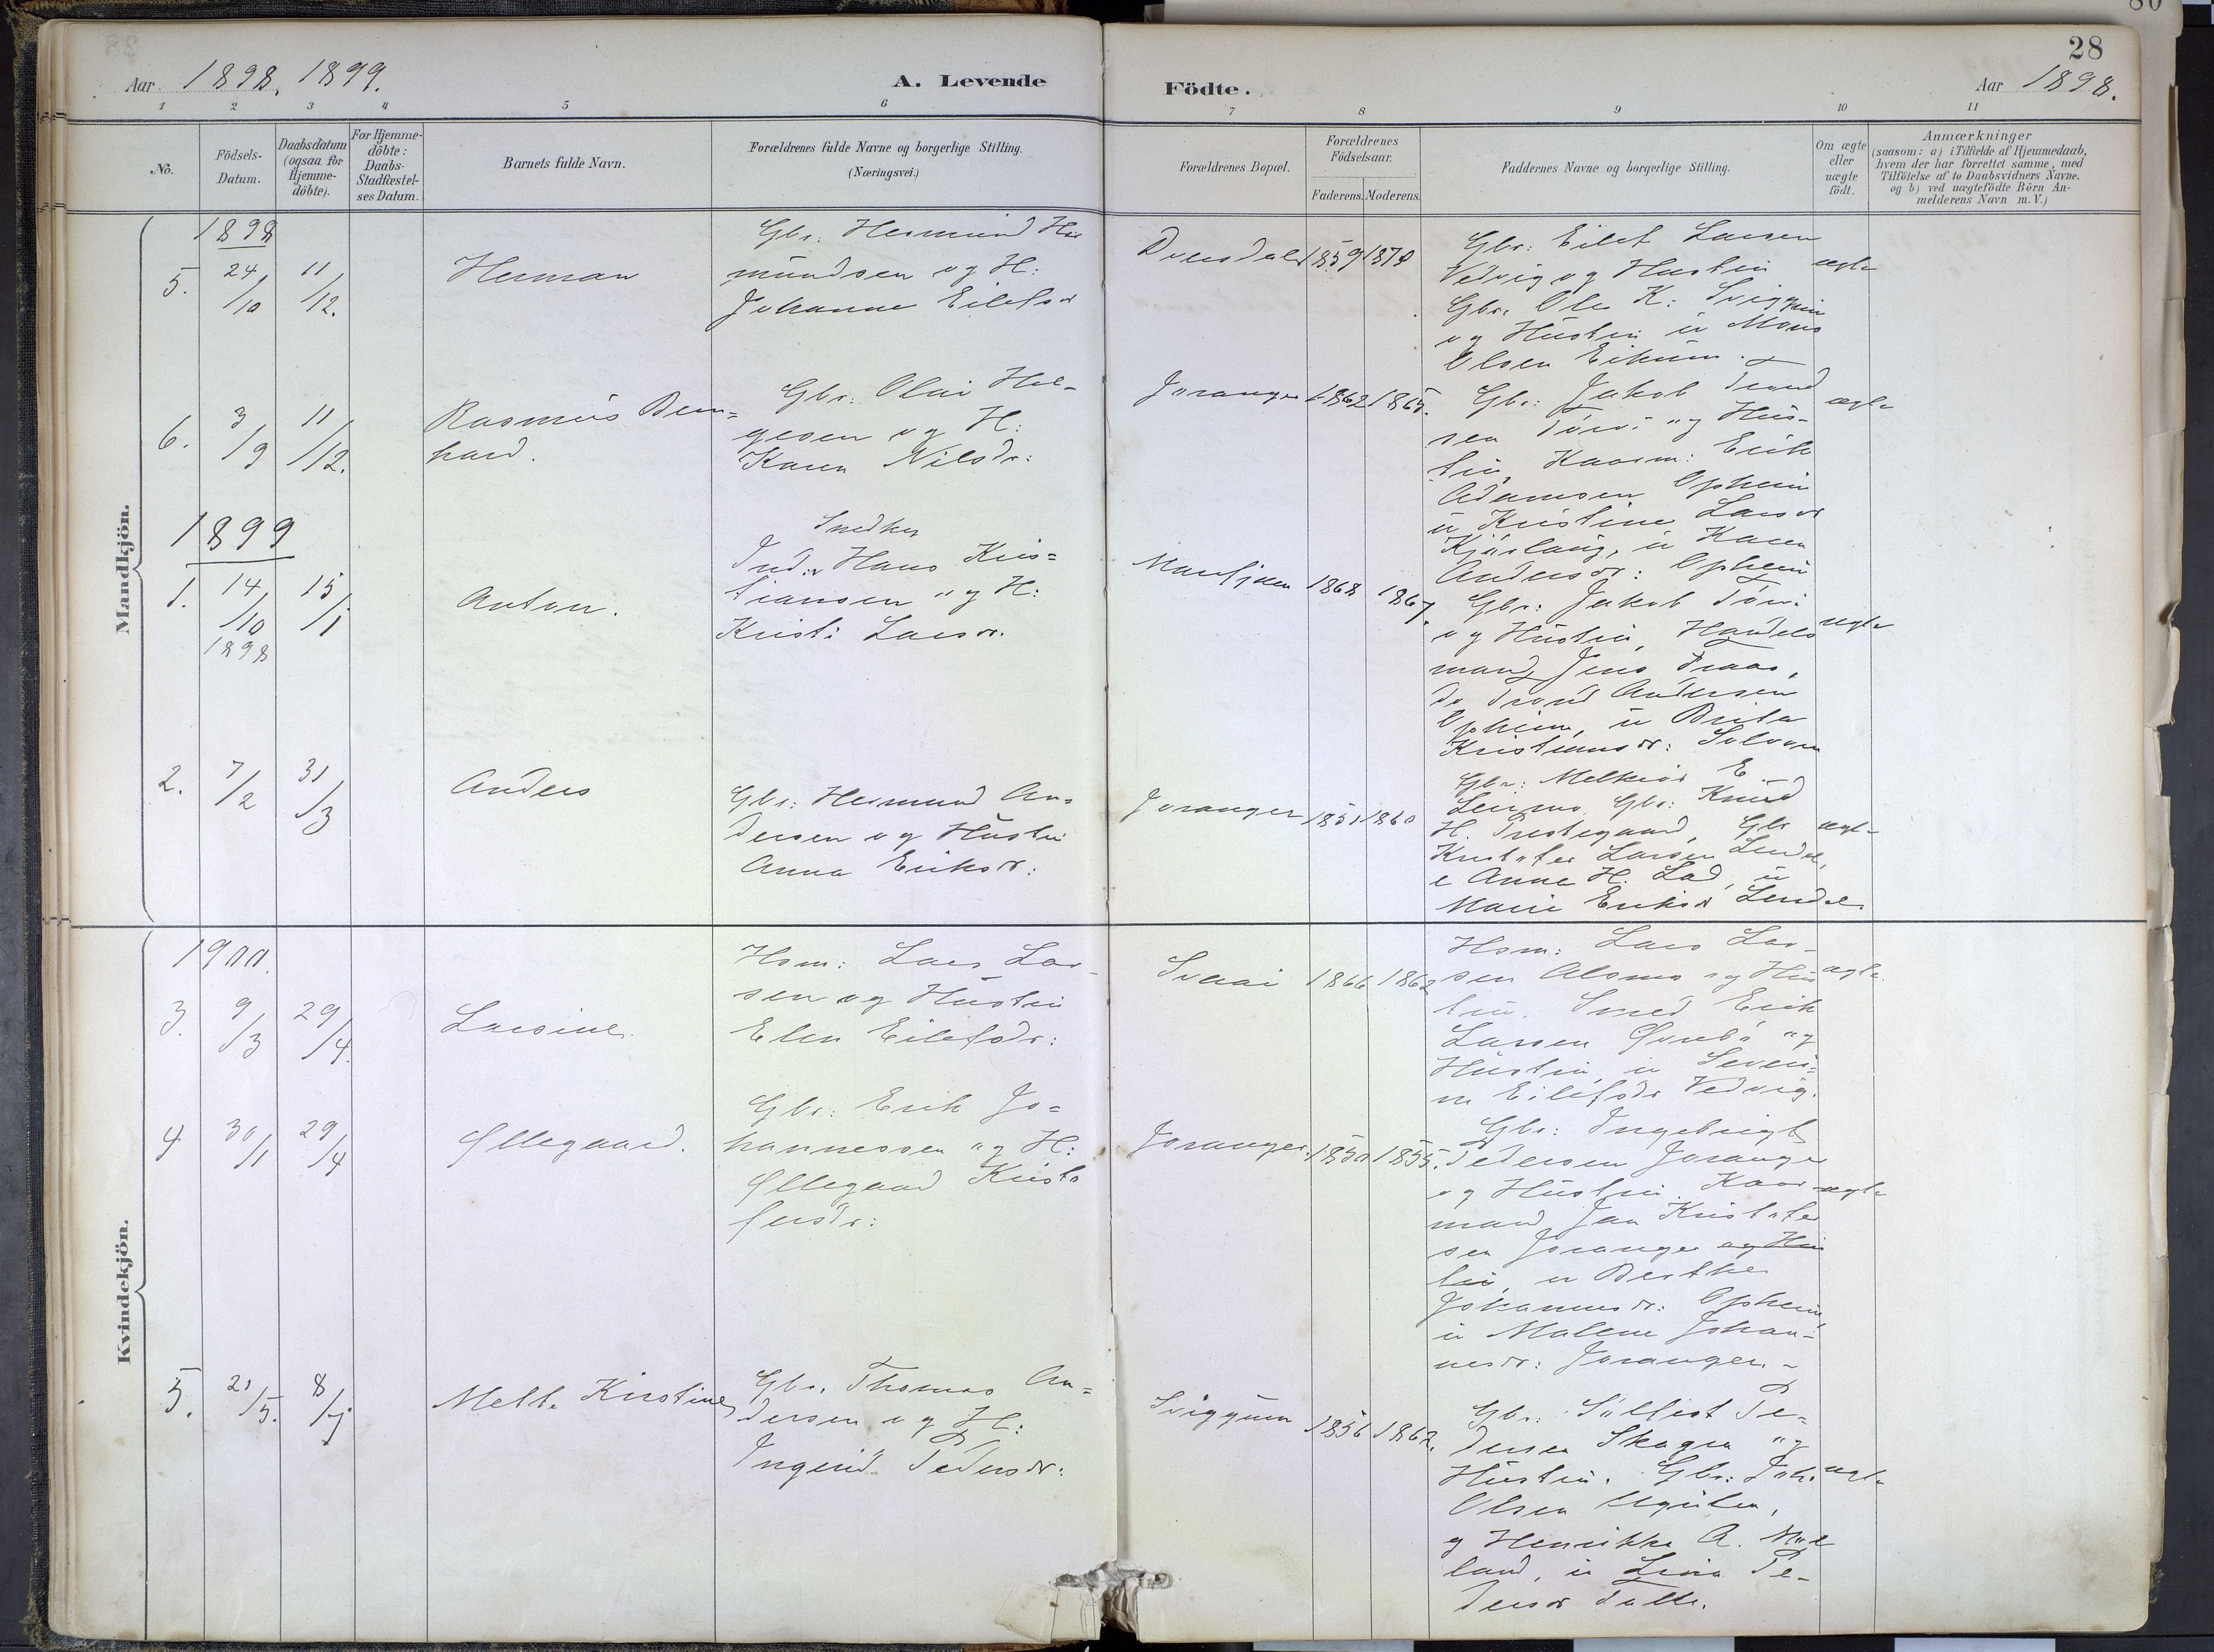 28
Aar 1898, 1899.
A. Levende
Födte.
Aar 1898.
1 2 3 4 5 6 7 8 9 10 11
No.
Födsels-
Datum.
Daabsdatum
(ogsaa for
Hjemme-
döbte).
For Hjemme-
döbte:
Daabs-
Stadfæstel-
ses Datum.
Barnets fulde Navn.
Forældrenes fulde Navne og borgerlige Stilling.
(Næringsvei.)
Forældrenes Bopæl.
Forældrenes
Födselsaar.
Faderens. Moderens.
Faddernes Navne og borgerlige Stilling.
Om ægte
eller
uægte
födt.
Anmærkninger
(saasom: a) i Tilfælde af Hjemmedaab,
hvem der har forrettet samme, med
Tilföielse af to Daabsvidners Navne,
og b) ved uægtefödte Börn An-
melderens Navn m. V.)
Mandkjön.
1898
5. 24/10 11/12.
Herman
Gbr: Hermund Her
mundsen og H:
Johanne Eilefsdr
1859
Gbr: Eilef Larsen
Vedvig og Hustru
Gbr. Ole K:
og Hustru u Mons
Olsen Eikum.
ægte
6. 3/9 11/12.
Rasmus Bern=
hard.
Gbr: Olai Hel-
gesen og H:
Karen Nilsdr:
Joranger 1862 1865.
Gbr: Jakob Trond
sen og Hus-
tru, Kaarm: Erik
Adamsen Opheim
u Kristine Larsdr
u Karen
Andersdr: Opheim
ægte
1899
1. 14/10 1898 15/1
Anton.
Snedker
Ind: Hans Kris=
tiansen og H:
Kristi Larsdr.
1868 1867.
Gbr: Jakob
og Hustru, Handels
mand Jens
do Trond Andersen
Opheim, u Brita
Kristiansdr:
ægte
2. 7/2 31/3
Anders
Gbr: Hermund An=
dersen og Hustru
Anna Eriksdr:
Joranger 1851 1860
Gbr: Melkior E.
Leirmo Gbr: Knud
H. Prestegaard, Gbr
Kristofer Larsen
e Anna H. Lad, u
Marie Eriksdr
ægte
Kvindekjön.
1900.
3. 9/3 29/4.
Larsine
Hsm: Lars Lar-
sen og Hustru
Elen Eilefsdr:
1866 1862
Hsm: Lars Lar-
sen Alsmo og Hus
tru. Smed Erik
Larsen og
Hustru, u Severi=
ne Eilefsdr Vedvig.
ægte
4 30/1 29/4
Øllegaard.
Gbr: Erik Jo=
hannessen og H:
Øllegaard Kristo
fersdr:
Joranger. 1850 1855.
Gbr: Ingebrigt
Pedersen Joranger
og Hustru. Kaar
mand Jan Kristofer
sen Joranger og Hus
tru, u Berthe
Johannesdr: Opheim,
u Malene Johan=
nesdr: Joranger.-
ægte
5. 21/5. 8/7
Mette Kirstine
Gbr. Thomas An=
dersen og H:
Ingerid Pedersdr:
Sviggum 1856 1862.
Gbr: Söllest Pe-
dersen Skagen og
Hustru. Gbr: Joh.
Olsen
og Henrikke A.
land, u Pe-
dersdr
ægte